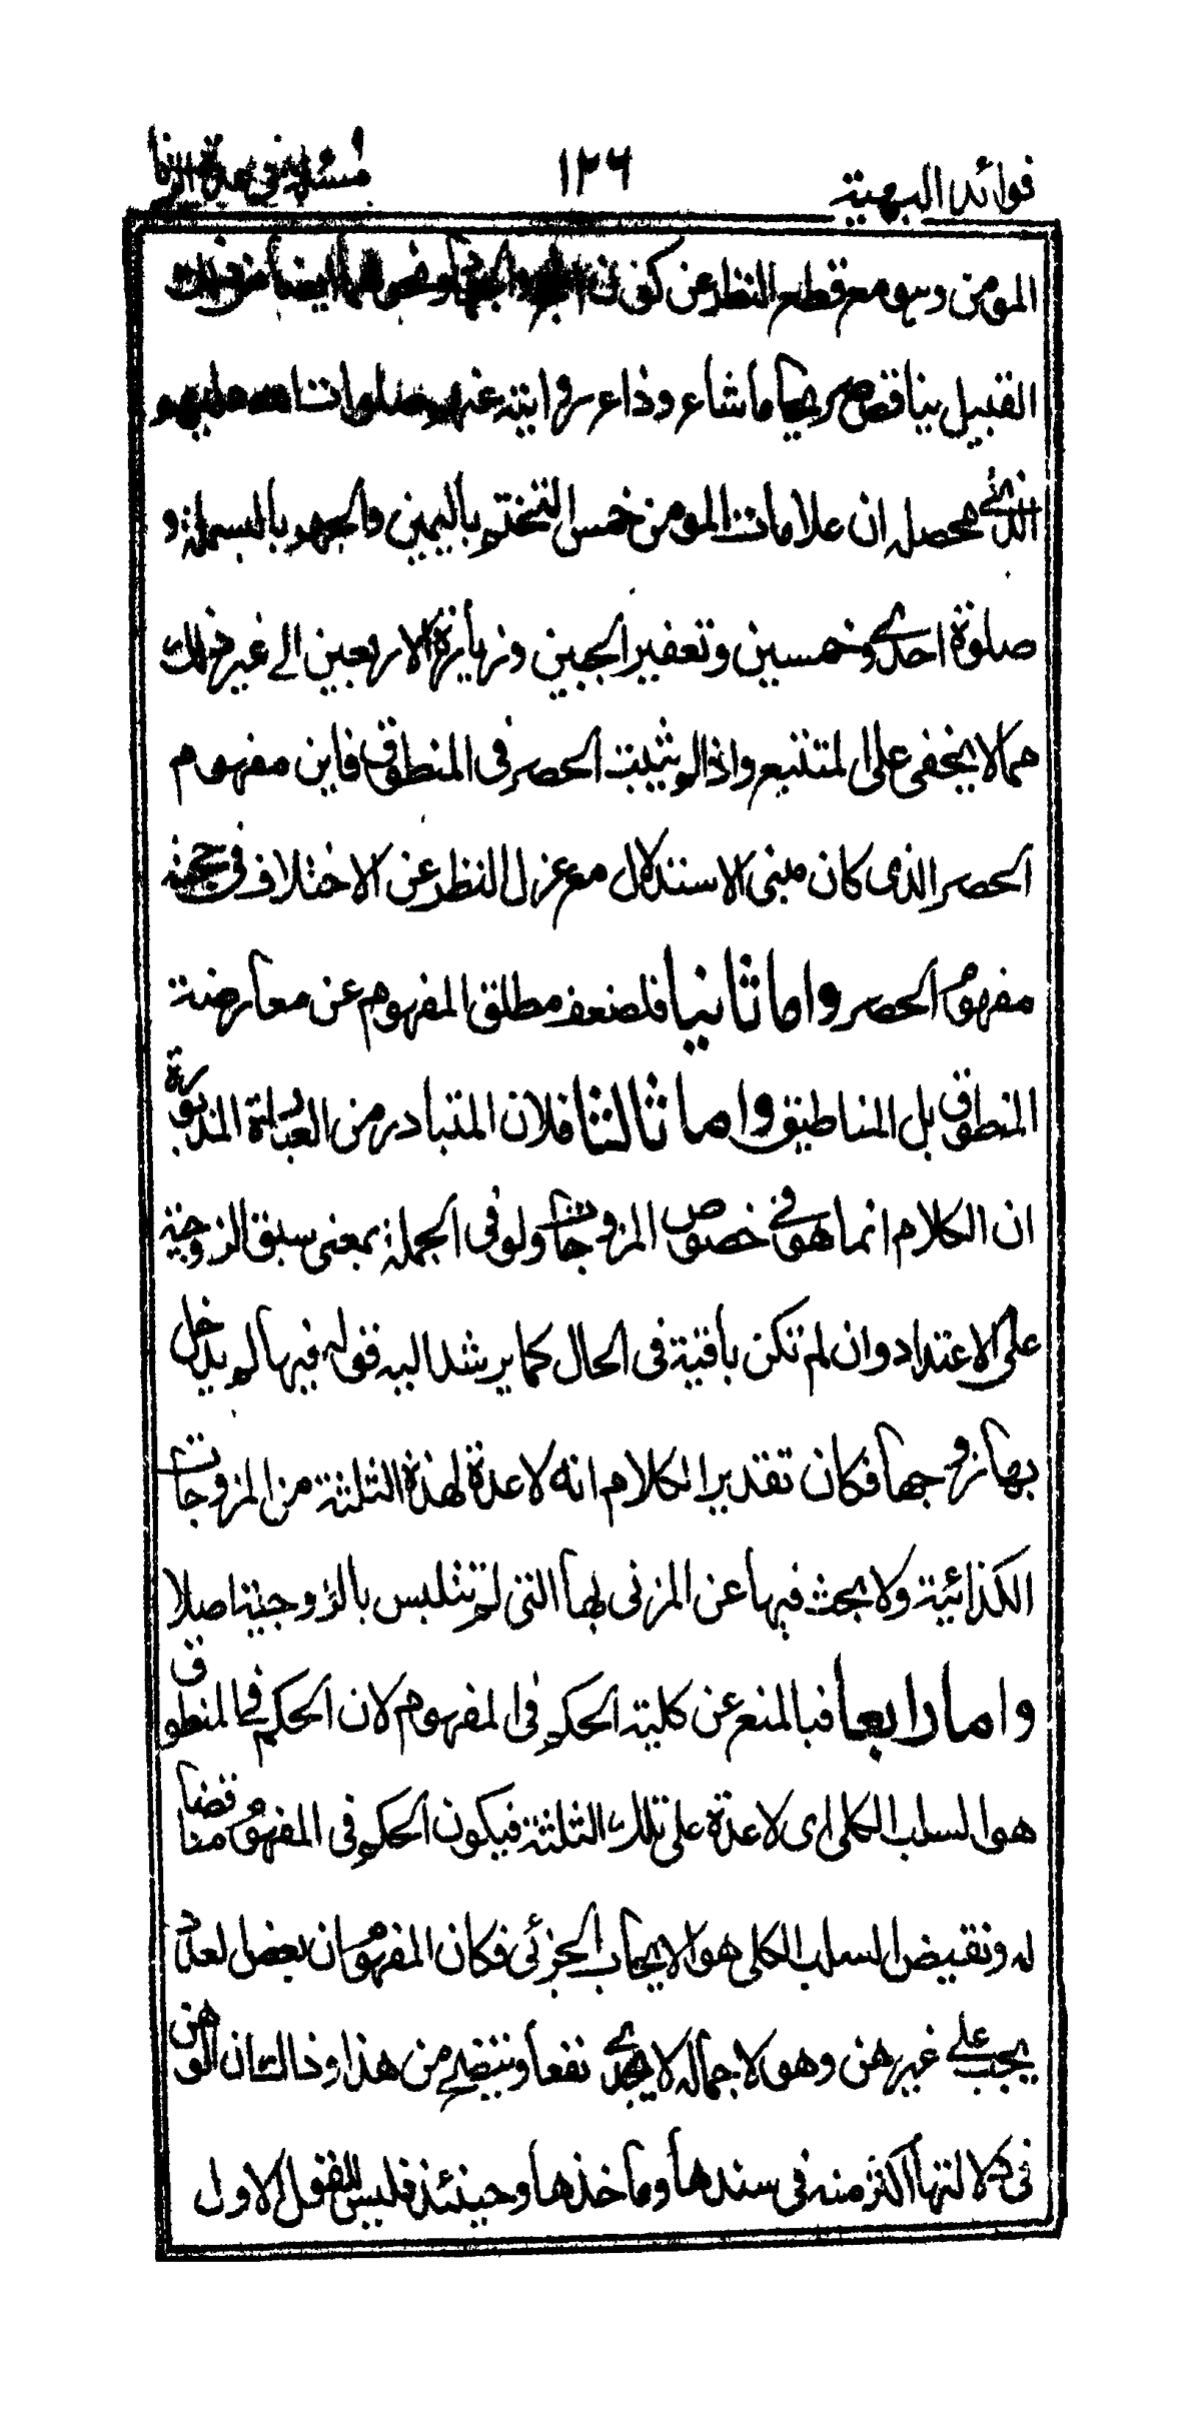 فوائد البهية
١٢٦
مسئلة في عدة الزنا
المومن وسهو مع قطع النظر عن كون ايضا من ذلك
القبيل يناقض صريحا ما شاع وذاع روايته عنهم صلوات الله عليهم
الذي محصله ان علامات المومن خمس التختم باليمين والجهر بالبسملة و
صلوة احدى وخمسين وتعفير الجبين وزيارة الاربعين الى غير ذلك
مما لا يخفى على المتتبع واذا لم يثبت الحصر في المنطوق فاين مفهوم
الحصر الذى كان مبنى الاستدلال مع عزل النظر عن الاختلاف في حجية
مفهوم الحصر واما ثانيا فلضعف مطلق المفهوم عن معارضة
المنطوق بل المناطيق واما ثالثا فلان المتبادر من العبارة المذكورة
ان الكلام انما هو في خصوص المزوجات ولو في الجملة بمعنى سبق الزوجية
على الاعتداد وان لم تكن باقية فى الحال كما يرشد اليه قوله فيها لم يدخل
بها زوجها فكان تقدير الكلام انه لا عدة لهذه الثلثة من المزوجات
الكذائية ولا بحث فيها عن المزنى بها التى لم تتلبس بالزوجية اصلا
واما رابعا فبالمنع عن كلية الحكم فى المفهوم لان الحكم في المنطوق
هو السلب الكلى اى لا عدة على تلك الثلثة فيكون الحكم فى المفهوم مناقضا
له ونقيض السلب الكلى هو الايجاب الجزئى فكان المفهوم ان بعض العدد
يجب على غيرهن وهو لاجماله لا يجدي نفعا ويتضح من هذا وذا لك ان الوهن
فى دلالتها اكثر منه فى سندها وماخذها وحينئذ فليس للقول الاول